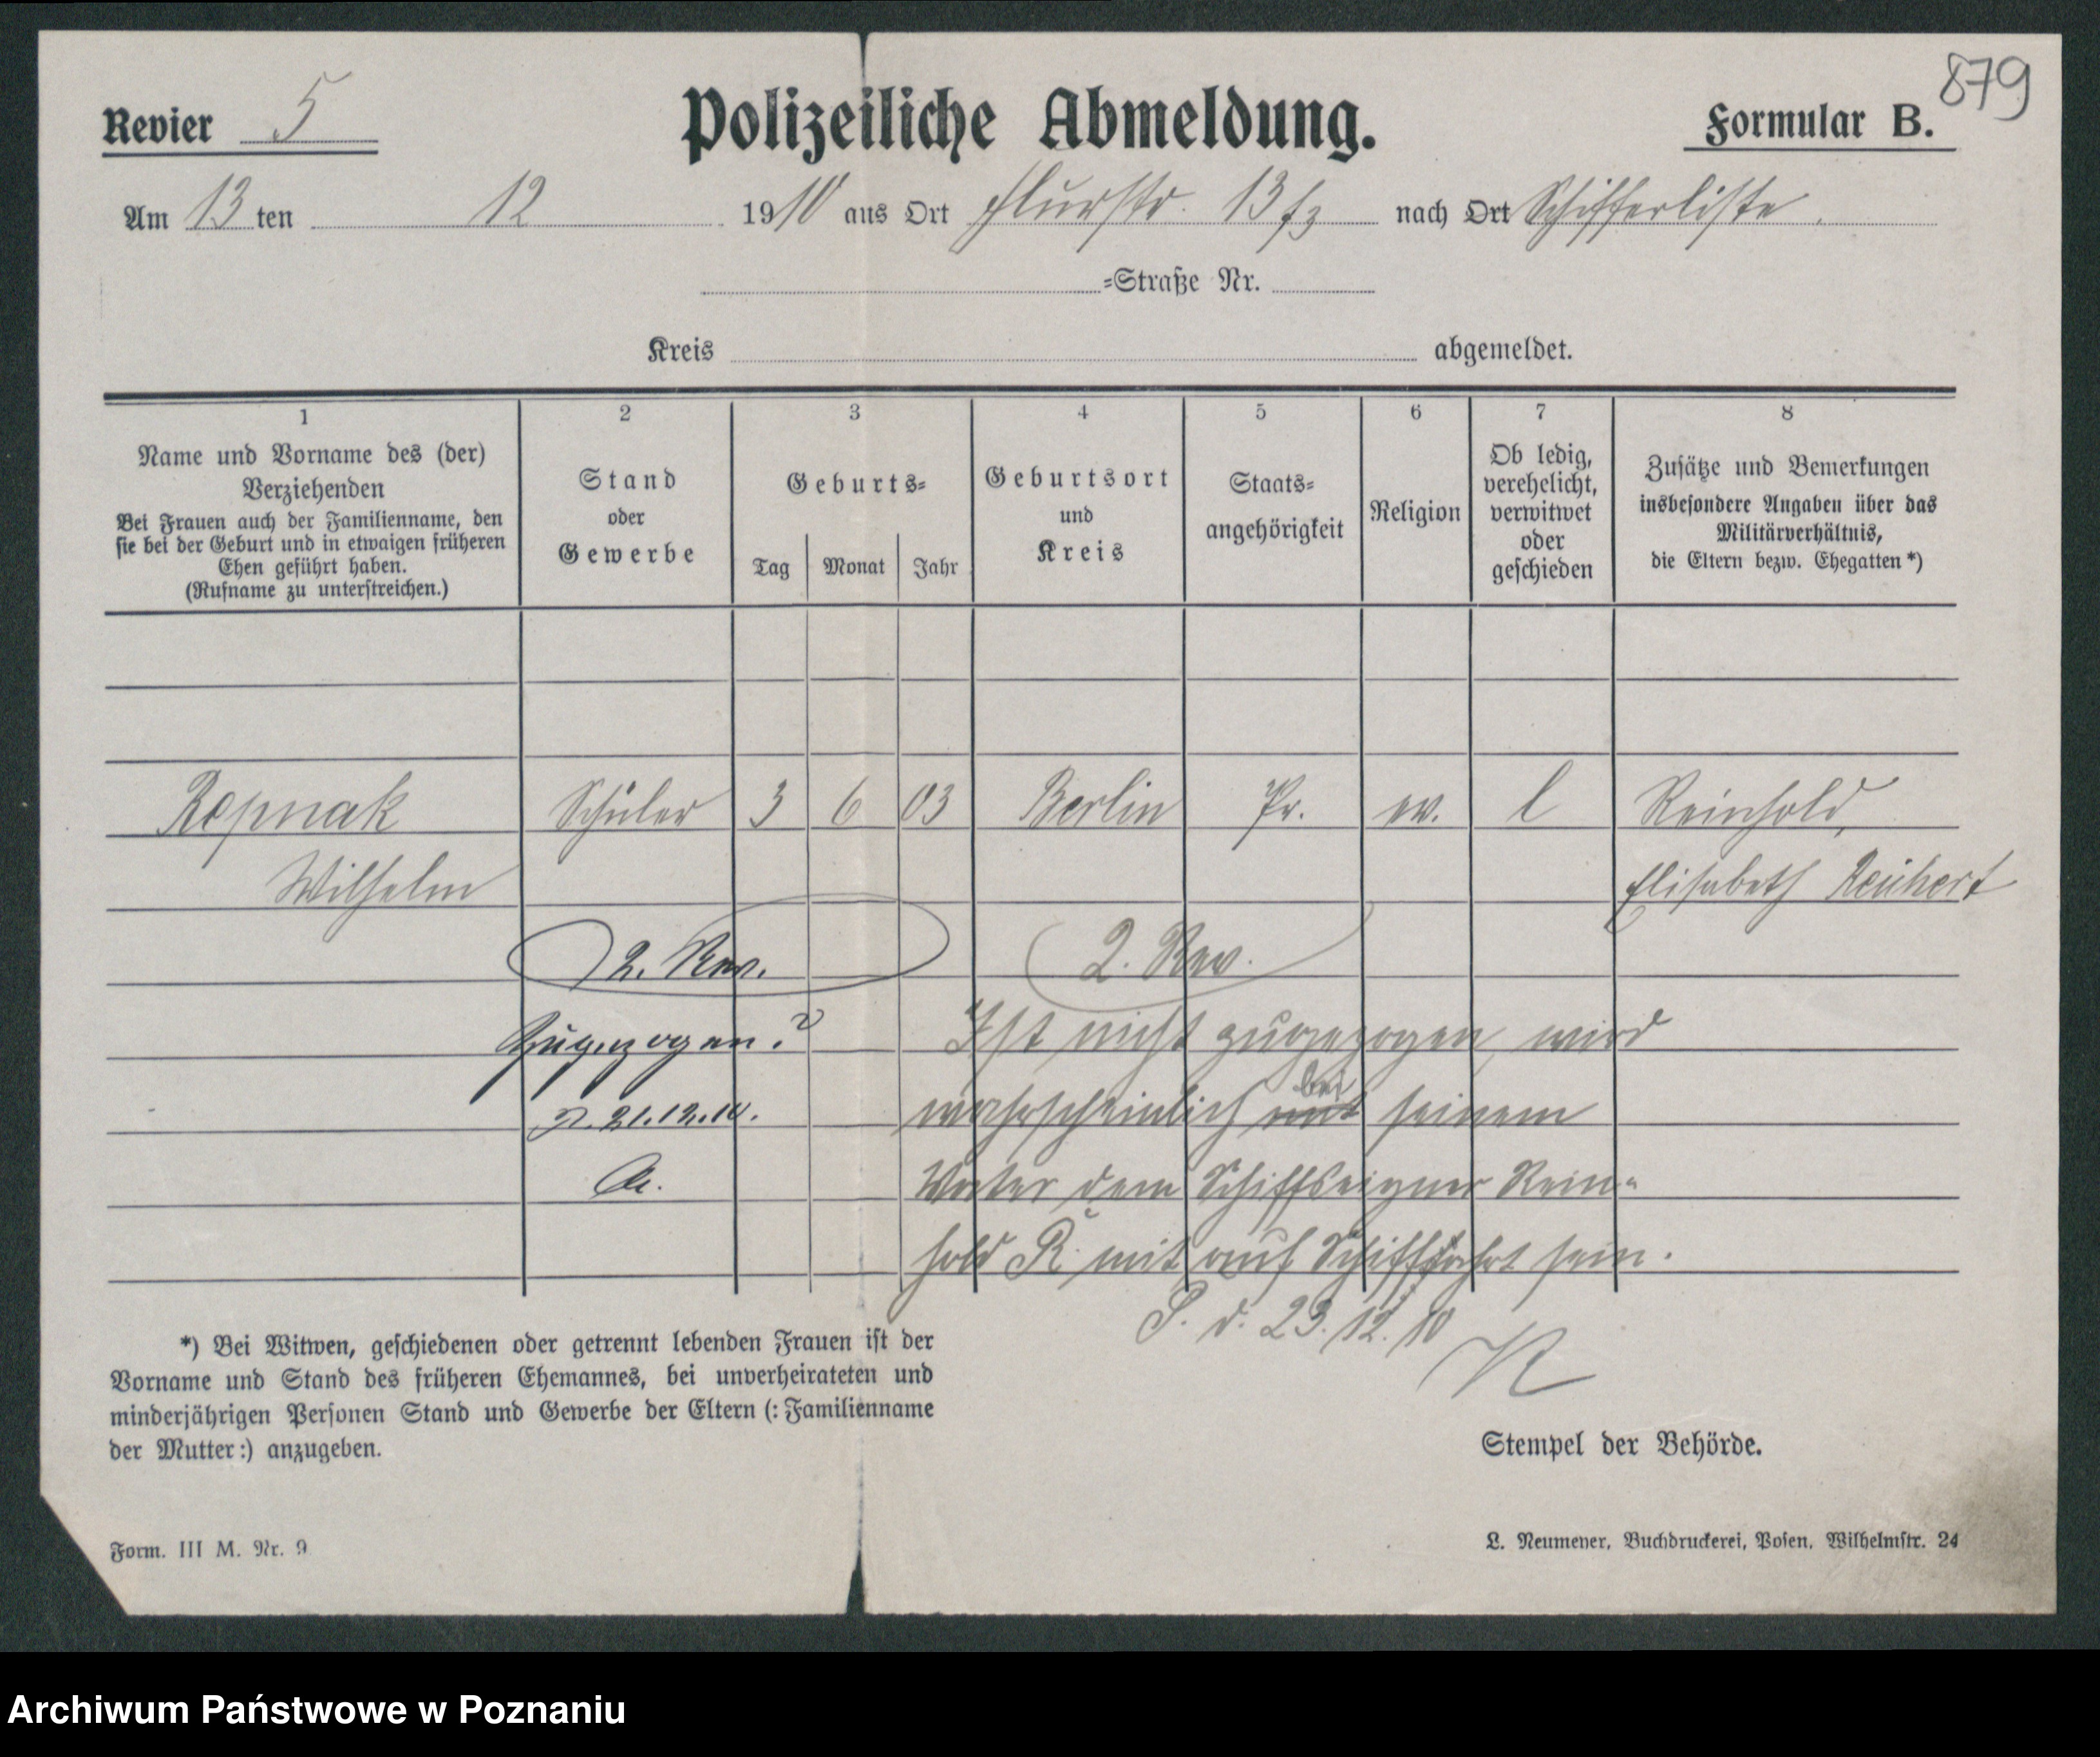 879
Revier 5
Polizeiliche Abmeldung.
Formular B.
Am 13 ten 12 1910 aus Ort Flurstr. 13 nach Ort Schifferliste.
=Straße Nr.
Kreis abgemeldet.
1 2 3 4 5 6 7 8
Name und Vorname des (der)
Verziehenden
Bei Frauen auch der Familienname, den
sie bei der Geburt und in etwaigen früheren
Ehen geführt haben.
(Rufname zu unterstreichen.)
Stand
oder
Gewerbe
Geburts=
Tag Monat Jahr
Geburtsort
und
Kreis
Staats=
angehörigkeit
Religion
Ob ledig,
verehelicht,
verwitwet
oder
geschieden
Zusätze und Bemerkungen
insbesondere Angaben über das
Militärverhältnis,
die Eltern bezw. Ehegatten *)
Repnak Schüler 3 6 03 Berlin Pr. ev. l Reinhold,
Wilhelm Elisabeth Reichert
2. Rev. 2. Rev.
Zugezogen? Ist nicht zugezogen, wird
P. 21.12.10. wahrscheinlich mit bei seinem
Vater dem Schiffseigner Rein-
hold R. mit auf Schifffahrt sein.
P. d. 23.12.10
*) Bei Witwen, geschiedenen oder getrennt lebenden Frauen ist der
Vorname und Stand des früheren Ehemannes, bei unverheirateten und
minderjährigen Personen Stand und Gewerbe der Eltern (: Familienname
der Mutter:) anzugeben.
Stempel der Behörde.
Form. III M. Nr. 9
L. Neumeyer, Buchdruckerei, Posen, Wilhelmstr. 24
Archiwum Państwowe w Poznaniu